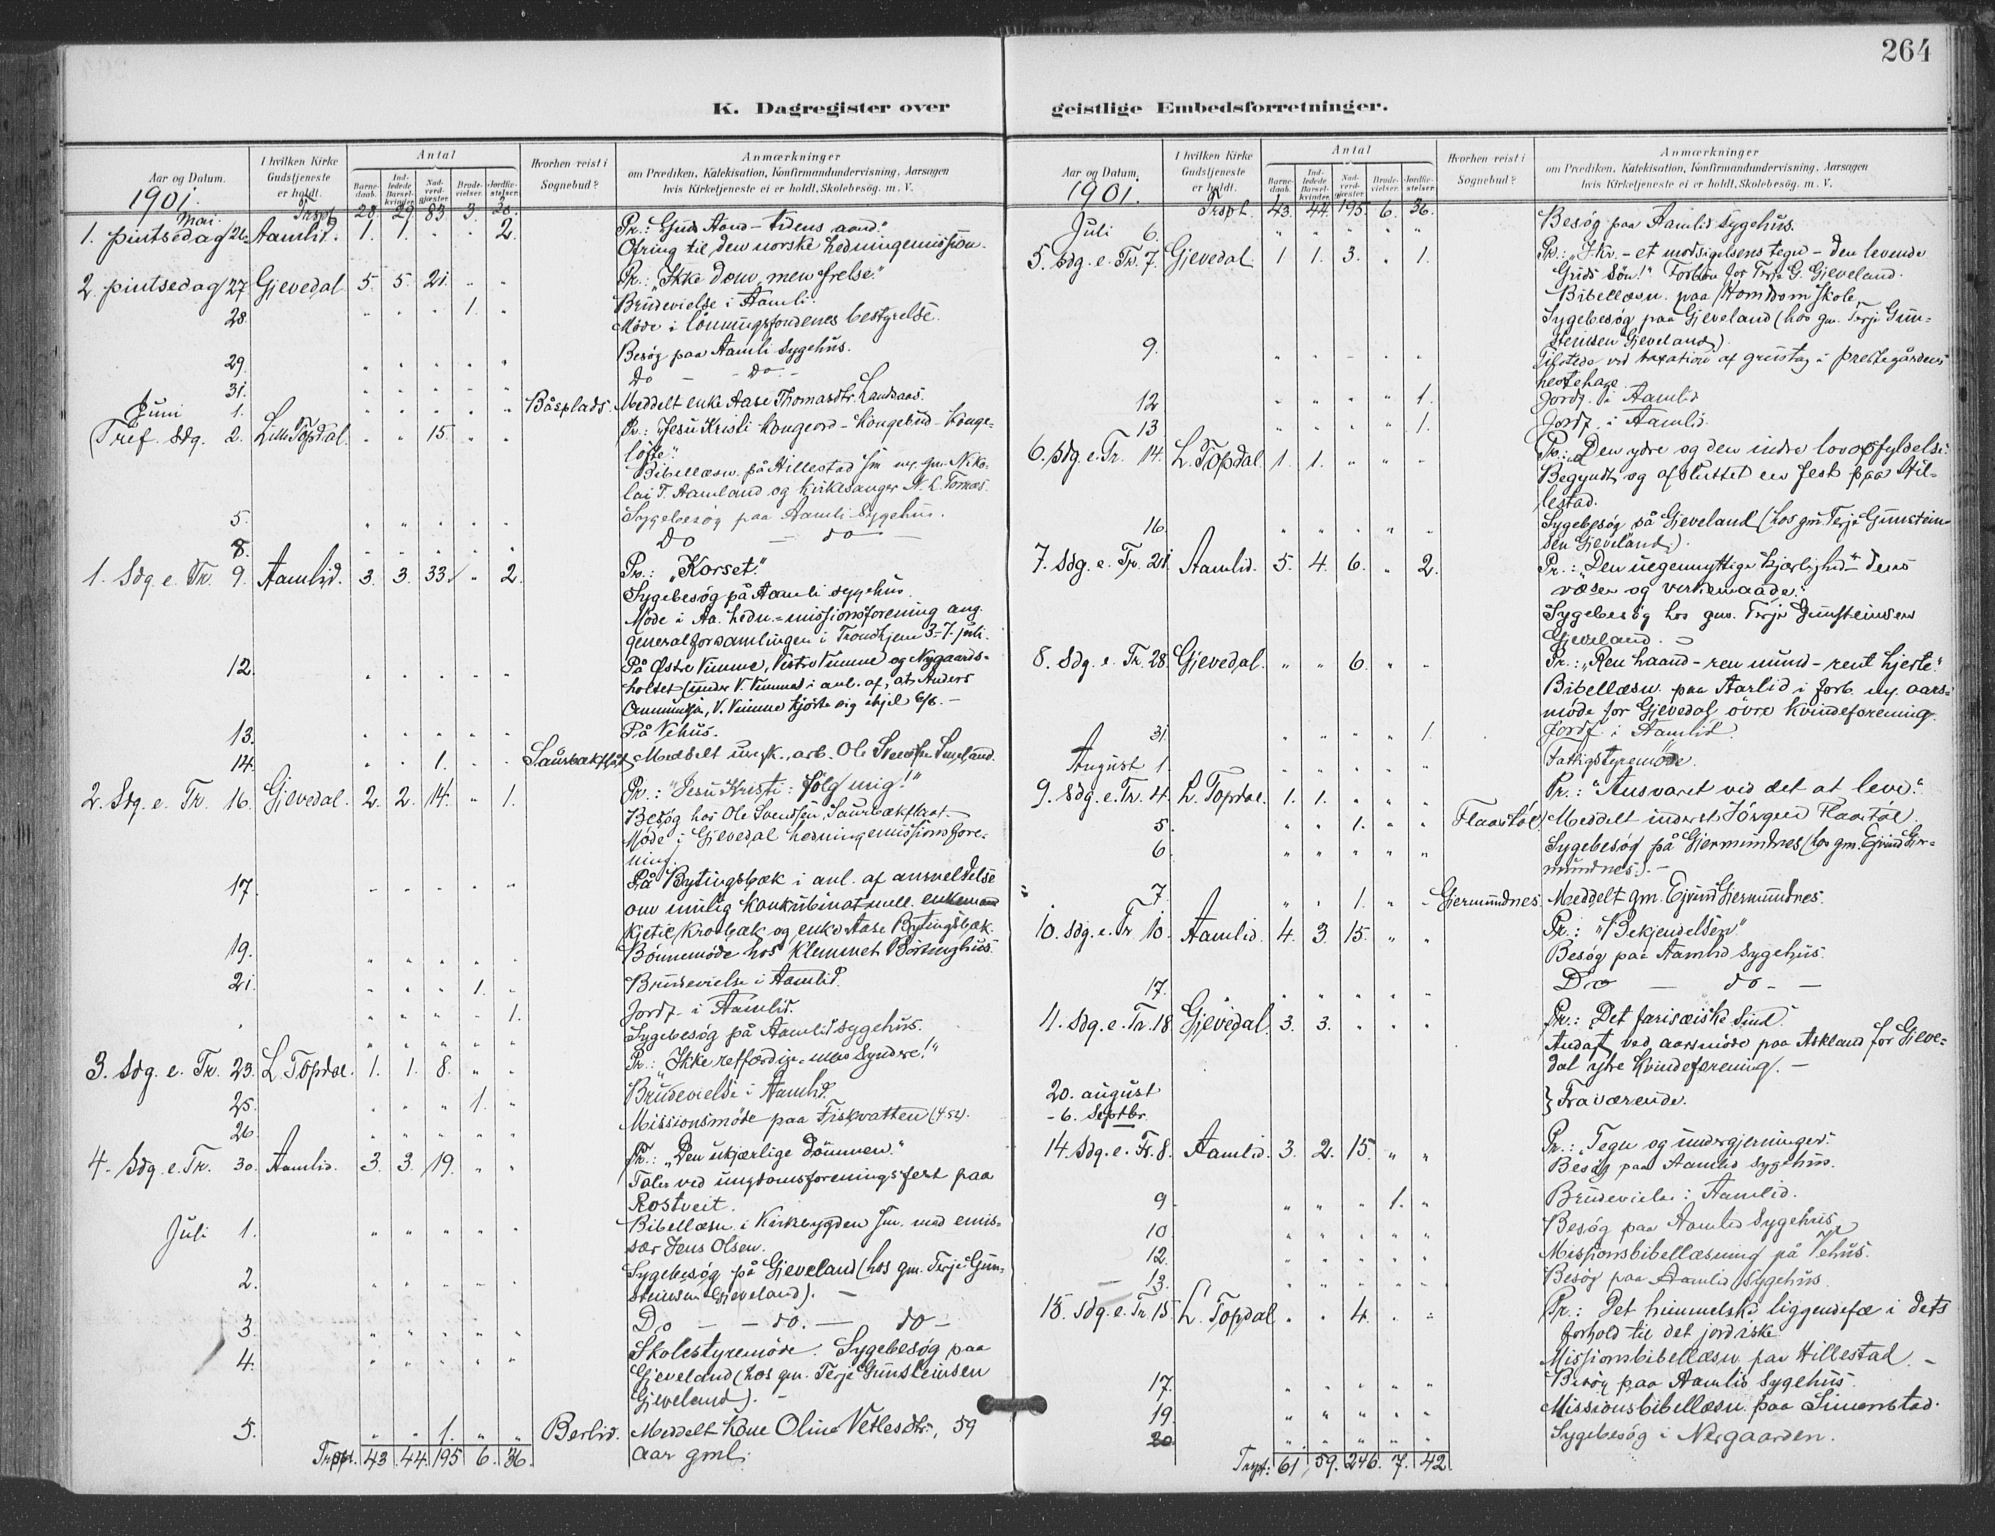 264
K. Dagregister over
Aar og Datum.
I hvilken Kirke Gudstjeneste er holdt.
Antal
Barnedaab.
Indledede Barselkvinder.
Nadverdgjæster.
Brudevielser.
Jordfæstelser.
Hvorhen reist i Sognebud?
Anmærkninger
om Prædiken, Katekisation, Konfirmandundervisning, Aarsagen
hvis Kirketjeneste ei er holdt, Skolebesøg. m. V.
1901. Trspt. 28. 29. 83. 3. 28.
Mai
1. pintsedag 26. Aamlid. 1. 1. " " 2. Pr.: Guds Aand - tidens aand."
Ofring til den norske hedningemission.
2. pintsedag 27. Gjevedal 5. 5. 21. " " Pr.: "Ikke døm, men frelse."
28. " " " 1. " Brudevielse i Aamli.
Møde i lønningsfondenes bestyrelse.
29. " " " " " Besøg paa Aamli sygehus.
31. " " " " " Do - do -
Juni 1. " " " " " Båsplads. Meddelt enke Aase Thomasdtr. Landaas.
(Tref. Sdg. 2. Lille Topdal " " 15. " " Pr.: "Jesu Kristi kongeord - Kongebud - Konge-
løfte."
Bibellæsn. på Hillestad sm. m. gm. Niko-
lai T. Aamland og kirkesanger N. L. Tornæs.
5. " " " " " Sygebesøg paa Aamli Sygehus.
8. " " " " " Do - do -
1. Sdg. e. Tr. 9. Aamlid. 3. 3. 33. " 2. Pr.: "Korset."
Sygebesøg på Aamli sygehus.
Møde i Aa. hedn.-missionsforening ang.
generalforsamlingen i Trondhjem 3-7. juli.
12. " " " " " På Østre Vimme, Vestre Vimme og Nygaards-
holtet (under V. Vimme) i anl. af, at Anders
V. Vimme kjørte sig ihjel 6/6. -
13. " " " " " På Vehus.
14. " " 1. " " Saurbækflåt Meddelt arb. Ole
2. Sdg. e. Tr. 16. Gjevedal. 2. 2. 14. " 1. Pr.: "Jesu Kristi: følg mig!"
Besøg hos Ole Svendsen, Saurbækflaat.
Møde i Gjevedal hedningemissionsfore-
ning.
17. " " " " " På Bytingsbæk i anl. af anmeldelse
om mulig konkubinat mell. enkemand
Kjetil Krobæk og enke Aase Bytingsbæk.
19. " " " " " Bønnemøde hos Klemmet
21. " " " 1. " Brudevielse i Aamlid.
" " " " 1. Jordf. i Aamlid.
" " " " " Sygebesøg på Aamlid sygehus.
3. Sdg. e. Tr. 23. L. Topdal. 1. 1. 8. " " Pr.: "Ikke retfærdige - men Syndere!"
25. " " " 1. " Brudevielse i Aamlid.
26. " " " " " Missionsmøde paa Fiskvatten
4. Sdg. e. Tr. 30. Aamlid. 3. 3. 19. " " Pr.: "Den ukjærlige dømmen."
Taler ved ungdomsforeningsfest paa
Rostveit.
Juli 1. " " " " " Bibellæsn. i Kirkebygden sm. med emis-
sær Jens Olsen.
2. " " " " " Sygebesøg på Gjeveland (hos gm. Terje Gun-
steinsen Gjeveland). -
3. " " " " " Do - - do. - do -
4. " " " " " Skolestyremøde. Sygebesøg paa
Gjeveland (hos gm. Terje Gunsteinsen
Gjeveland). -
5. " " 1. " " Berlid. Meddelt Kone Oline Vetlesdtr., 59
aar gml.
Trspt. 43. 44. 195 6. 36.
geistlige Embedsforretninger.
Aar og Datum.
I hvilken Kirke Gudstjeneste er holdt.
Antal
Barnedaab.
Indledede Barselkvinder.
Nadverdgjæster.
Brudevielser.
Jordfæstelser.
Hvorhen reist i Sognebud?
Anmærkninger
om Prædiken, Katekisation, Konfirmandundervisning, Aarsagen
hvis Kirketjeneste ei er holdt, Skolebesøg. m. V.
1901. Trspt. 43. 44. 195. 6. 36.
Juli 6. " " " " " Besøg paa Aamlid sygehus.
5. Sdg. e. Tr. 7. Gjevedal. 1 1. 3. " 1. Pr.: "J. Kr. - et modsigelsens tegn - den levende
Guds Søn!" Forbøn for Terje G. Gjeveland.
Bibellæsn. paa Homdrom Skole.
Sygebesøg paa Gjeveland (hos gm. Terje Gun-
steinsen Gjeveland).
9. " " " " " Tilstede ved taxation af grustag i prestegårdens
hestehage.
12 " " " " 1. Jordf. i Aamlid
13 " " " " 1. Jordf. i Aamlid.
6. Sdg. e. Tr. 14. L. Topdal. 1. 1. " " " Pr.: "Den ydre og den indre lovopfyldelse."
Begyndt og afsluttet en fest paa Hil-
lestad.
16. " " " " " Sygebesøg på Gjeveland (hos gm. Terje Gunstein-
sen Gjeveland).
7. Sdg. e. Tr. 21. Aamlid. 5. 4. 6. " 2. Pr.: "Den uegennyttige kjærlighed - dens
væsen og virkemaade."
Sygebesøg hos gm. Terje Gunsteinsen
Gjeveland. -
8. Sdg. e. Tr. 28. Gjevedal. " " 6. " " Pr.: "Ren haand - ren mund - rent hjerte."
Bibellæsn. paa Aarlid i forb. m. aars-
møde for Gjevedal øvre Kvindeforening.
31. " " " " 1. Jordf. i Aamlid.
August 1. " " " " " Fattigstyremøde.
9. Sdg. e. Tr. 4. L. Topdal. 1. 1. " " " Pr.: "Ansvaret ved det at leve."
5. " " 1. " " Flaastøl. Meddelt inderst Jørgen Flaastøl.
6. " " " " " Sygebesøg på Gjermundnes (hos gm. Ejvind Gjer-
mundnes). -
7. " " 1. " " Gjermundnes. Meddelt gm. Ejvind Gjermundnes.
10. Sdg. e. Tr. 10. Aamlid. 4. 3. 15. " " Pr.: "Bekjendelsen"
Besøg paa Aamlid Sygehus.
17. " " " " " Do - do - -
11. Sdg. e. Tr. 18. Gjevedal. 3. 3. " " " Pr.: "Det farisæiske Sind."
Andagt ved aarsmøde paa Askland for Gjeve-
dal ytre Kvindeforening. -
20. august
- 6. Septbr. } Fraværende.
14. Sdg. e. Tr. 8. Aamlid. 3. 2. 15. " " Pr.: "Tegn og undergjerninger."
Besøg paa Aamlid Sygehus.
9. " " " 1. " Brudevielse i Aamlid.
10 " " " " " Besøg paa Aamlid Sygehus.
12. " " " " " Missionsbibellæsning på Vehus.
- 13. " " " " " Besøg paa Aamlid Sygehus.
15. Sdg. e. Tr. 15. L. Topdal " " 4. " " Pr.: Det himmelske liggendefæ i dets
forhold til det jordiske
Missionsbibellæsn. paa Hillestad. -
17. " " " " " Besøg paa Aamlid Sygehus.
19 " " " " " Missionsbibellæsn. paa Simonstad.
20 " " " " " Sygebesøg i Nergaarden.
Trspt: 61. 59. 246. 7. 42